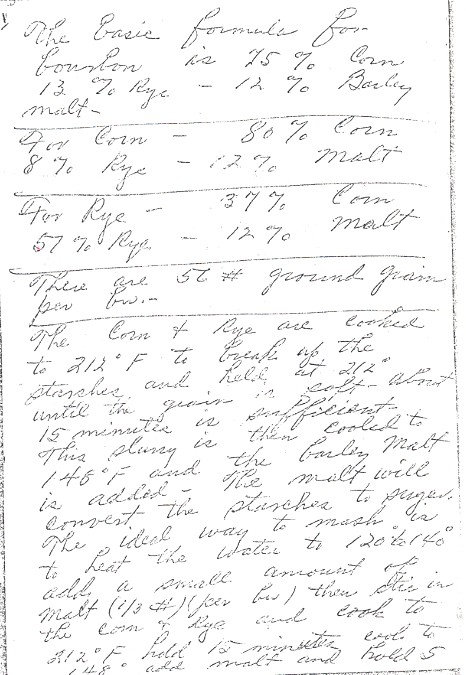 The basic formula for
bourbon is 75% Corn
13 % Rye - 12 % Barley
malt-
For Corn - 80 % Corn
8 % Rye - 12 % Malt
For Rye - 37 % Corn
51 % Rye - 12 % Malt
There are 56 # ground grain
per bu.-
The Corn & Rye are cooked
to 212° F to break up the
starches and held at 212°
until the grain is soft - About
15 minutes is sufficient-
This slurry is then cooled to
148° F and the barley Malt
is added. The malt will
convert the starches to sugar.
The ideal way to mash is
to heat the water to 120° to 140°
add a small amount of
Malt (1/3 #) (per bu) then stir in
the corn & Rye and cook to
212° F hold 15 minutes cool to
148° add malt and hold 5